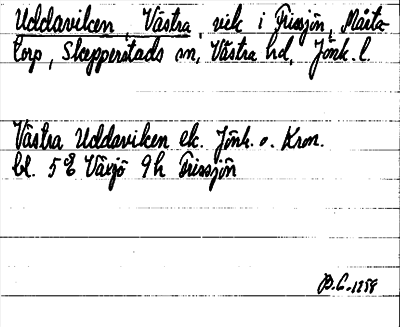 Uddaviken, Västra, vik i Frissjön, Måita-
torp, Skepperstads sn, Västra hd, Jönk. l.
Västra Uddaviken ek. Jönk. o. Kron.
bl. 5 E Växjö 9 h Frissjön
B.C. 1258